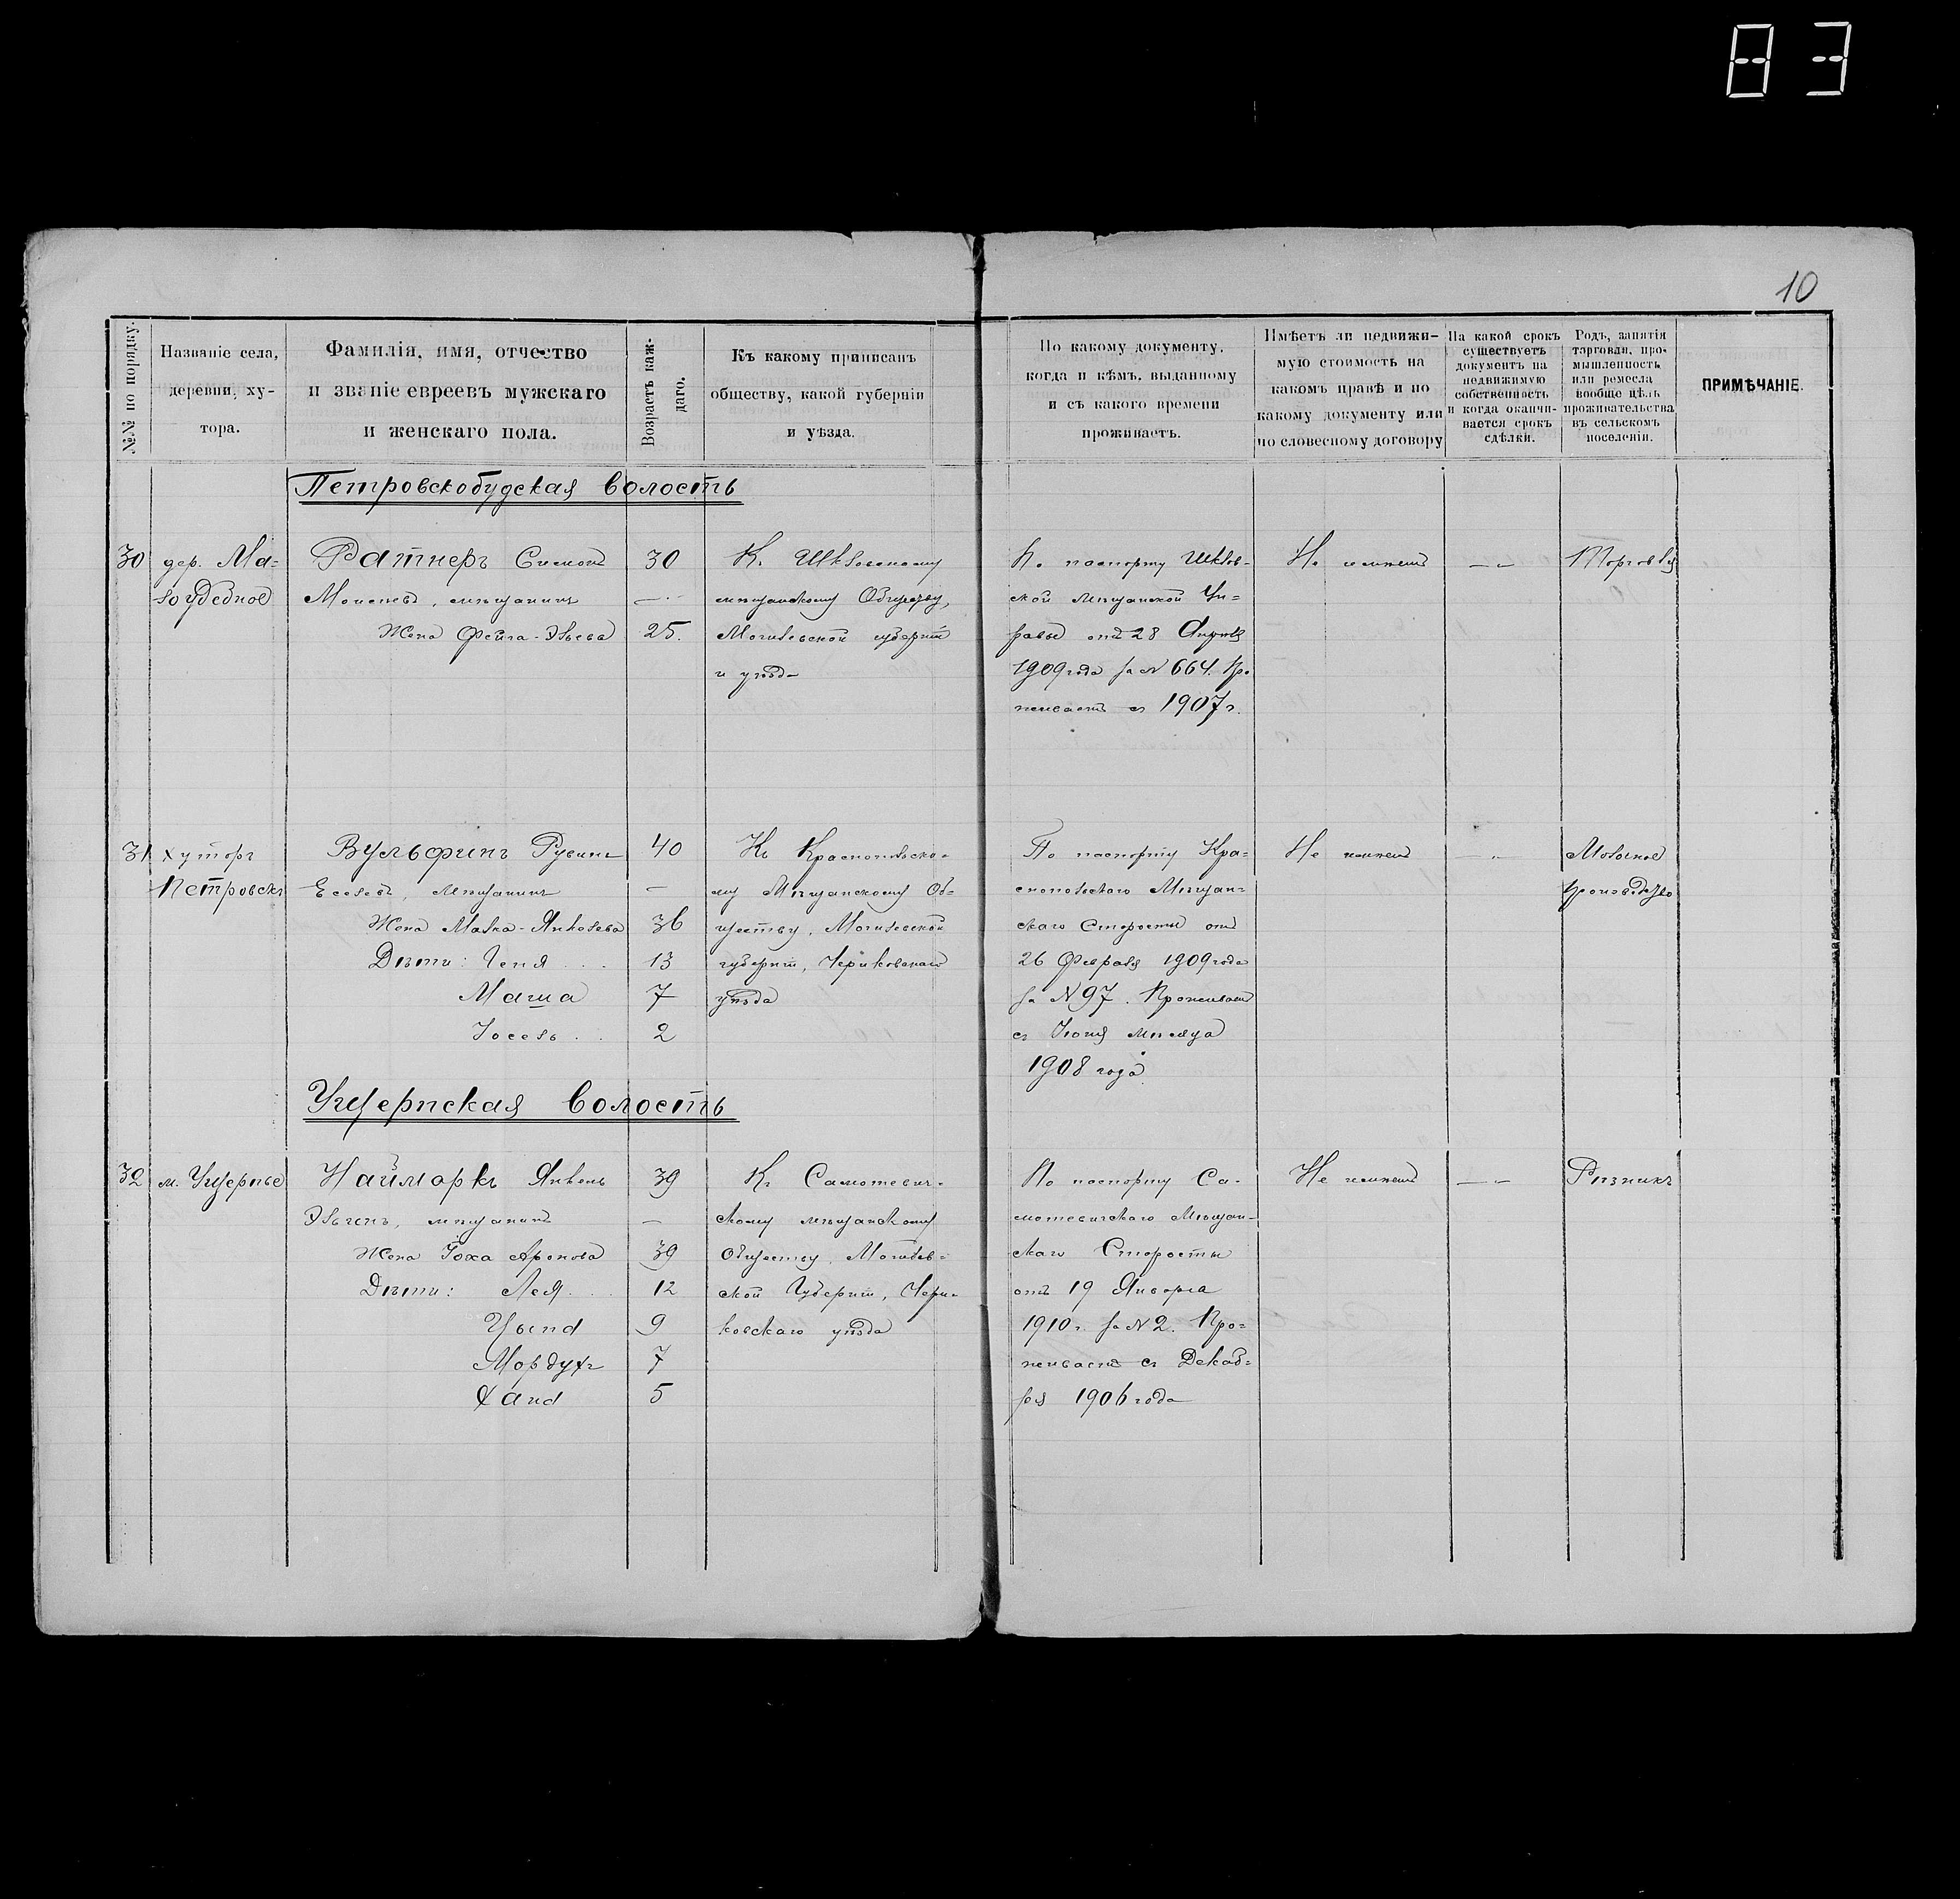 83
10
№№ по порядку.
Названіе села,
деревни, ху-
тора.
Фамилія, имя, отчество
и званіе евреевъ мужскаго
и женскаго пола.
Возрастъ каж-
даго.
Къ какому приписанъ
обществу, какой губерніи
и уѣзда.
По какому документу,
когда и кѣмъ, выданному
и съ какого времени
проживаетъ.
Имѣетъ ли недвижи-
мую стоимость на
какомъ правѣ и по
какому документу или
по словесному договору
На какой срокъ
существуетъ
документъ на
недвижимую
собственность
и когда оканчи-
вается срокъ
сдѣлки.
Родъ, занятія
торговли, про-
мышленность
или ремесла
вообще цѣль
проживательства
въ сельскомъ
поселеніи.
ПРИМѢЧАНІЕ.
Петровскобудская волость
30
дер. Ма-
лоудебное
Ратнеръ Симонъ
Моисеевъ, мѣщанинъ
Жена Фейга-Эльева
30
—
25.
Къ Шкловскому
мѣщанскому Обществу,
Могилевской губерніи
и уѣзда
По паспорту Шклов-
ской Мѣщанской Уп-
равы отъ 28 Апрѣля
1909 года за № 664. Про
живаетъ съ 1907 г.
Не имѣетъ
— „ —
Торговля
31
хуторъ
Петровскъ
Вульфинъ Рувинъ
Еселевъ, мѣщанинъ
Жена Малка-Янкелева
Дѣти: Геня
Маша
Іосель
40
—
36
13
7
2
Къ Краснопольско-
му Мѣщанскому Об-
ществу, Могилевской
губерніи, Чериковскаго
уѣзда
По паспорту Кра-
снопольскаго Мѣщан-
скаго Старосты отъ
26 Февраля 1909 года
за № 97. Проживаетъ
съ Іюня мѣсяца
1908 года
Не имѣетъ
— „ —
Молочное
производство
Ущерпская волость
32
м. Ущерпье
Наймаркъ Янкель
Эльевъ, мѣщанинъ
Жена Іоха Аронова
Дѣти: Лея
Цыпа
Мордухъ
Хана
39
—
39
12
9
7
5
Къ Самотевич-
скому мѣщанскому
Обществу, Могилев-
ской Губерніи, Чери-
ковскаго уѣзда
По паспорту Са-
мотевичскаго Мѣщан-
скаго Старосты
отъ 19 Января
1910 г. за № 2. Про-
живаетъ съ Декаб-
ря 1906 года
Не имѣетъ
— „ —
Рѣзникъ